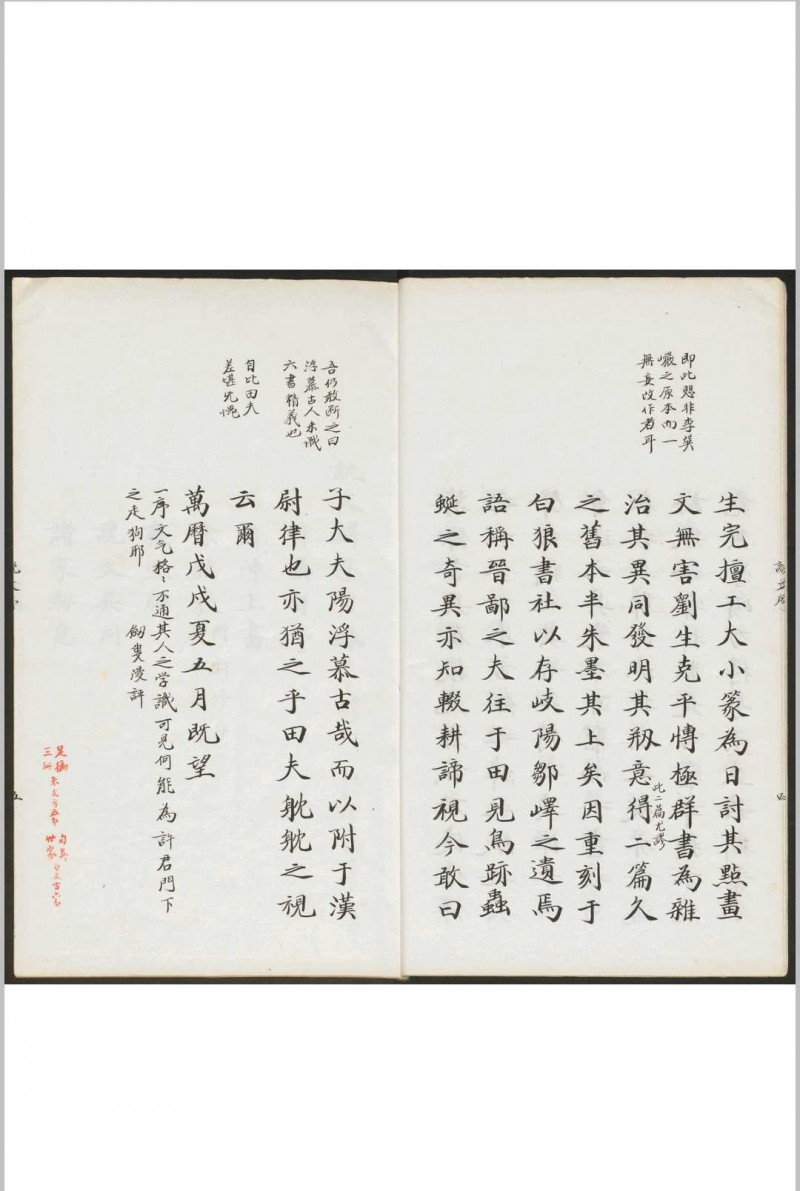 即此恐非李巽
巖之原本而一
無妄改作者耳
生完擅工大小篆為日討其點畫
文無害劉生克平博極群書為雜
治其異同發明其刱意得二篇久
此二篇尤謬
之舊本半朱墨其上矣因重刻于
白狼書社以存岐陽鄒嶧之遺焉
語稱晉鄙之夫往于田見鳥跡蟲
蜒之奇異亦知輟耕諦視今敢曰
吾仍敢断之曰
浮慕古人未識
六書精義也
自比田夫
差堪兄愧
子大夫陽浮慕古哉而以附于漢
尉律也亦猶之乎田夫躭躭之視
云爾
萬曆戊戌夏五月既望
一序文气格〻不通其人之学識可見何能為許君門下
之走狗耶 劬叟漫評